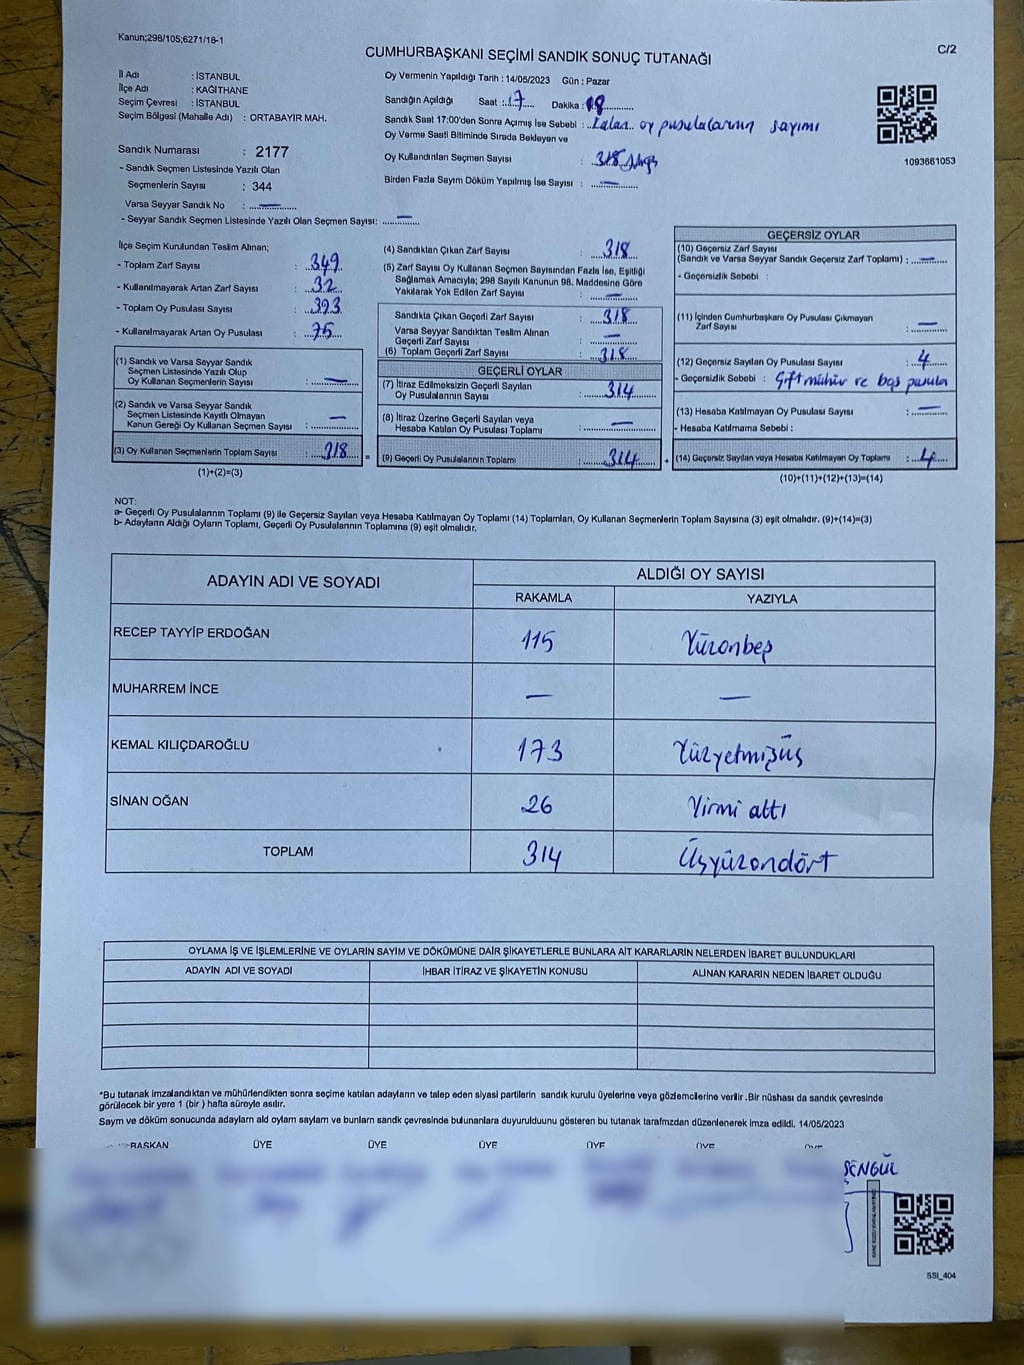 Kanun;298/105;6271/18-1
C/2
CUMHURBAŞKANI SEÇİMİ SANDIK SONUÇ TUTANAĞI
İl Adı : İSTANBUL
İlçe Adı : KAĞITHANE
Seçim Çevresi : İSTANBUL
Seçim Bölgesi (Mahalle Adı) : ORTABAYIR MAH.
Sandık Numarası : 2177
- Sandık Seçmen Listesinde Yazılı Olan
Seçmenlerin Sayısı : 344
Varsa Seyyar Sandık No : —
- Seyyar Sandık Seçmen Listesinde Yazılı Olan Seçmen Sayısı: —
Oy Vermenin Yapıldığı Tarih : 14/05/2023 Gün : Pazar
Sandığın Açıldığı Saat : 17 Dakika : 18
Sandık Saat 17:00'den Sonra Açımış İse Sebebi : Kalan oy pusulalarının sayımı
Oy Verme Saati Bitiminde Sırada Bekleyen ve
Oy Kullandırılan Seçmen Sayısı : 318
Birden Fazla Sayım Döküm Yapılmış İse Sayısı : —
1093661053
İlçe Seçim Kurulundan Teslim Alınan;
- Toplam Zarf Sayısı : 349
- Kullanılmayarak Artan Zarf Sayısı : 32
- Toplam Oy Pusulası Sayısı : 393
- Kullanılmayarak Artan Oy Pusulası : 75
(1) Sandık ve Varsa Seyyar Sandık
Seçmen Listesinde Yazılı Olup
Oy Kullanan Seçmenlerin Sayısı : —
(2) Sandık ve Varsa Seyyar Sandık
Seçmen Listesinde Kayıtlı Olmayan
Kanun Gereği Oy Kullanan Seçmen Sayısı : —
(3) Oy Kullanan Seçmenlerin Toplam Sayısı : 318
(1)+(2)=(3)
(4) Sandıktan Çıkan Zarf Sayısı : 318
(5) Zarf Sayısı Oy Kullanan Seçmen Sayısından Fazla İse, Eşitliği
Sağlamak Amacıyla; 298 Sayılı Kanunun 98. Maddesine Göre
Yakılarak Yok Edilen Zarf Sayısı : —
Sandıkta Çıkan Geçerli Zarf Sayısı : 318
Varsa Seyyar Sandıktan Teslim Alınan
Geçerli Zarf Sayısı : —
(6) Toplam Geçerli Zarf Sayısı : 318
GEÇERLİ OYLAR
(7) İtiraz Edilmeksizin Geçerli Sayılan
Oy Pusulalarının Sayısı : 314
(8) İtiraz Üzerine Geçerli Sayılan veya
Hesaba Katılan Oy Pusulası Toplamı : —
= (9) Geçerli Oy Pusulalarının Toplamı : 314 +
GEÇERSİZ OYLAR
(10) Geçersiz Zarf Sayısı
(Sandık ve Varsa Seyyar Sandık Geçersiz Zarf Toplamı) : —
- Geçersizlik Sebebi :
(11) İçinden Cumhurbaşkanı Oy Pusulası Çıkmayan
Zarf Sayısı : —
(12) Geçersiz Sayılan Oy Pusulası Sayısı : 4
- Geçersizlik Sebebi : Çift mühür ve boş pusula
(13) Hesaba Katılmayan Oy Pusulası Sayısı : —
- Hesaba Katılmama Sebebi :
(14) Geçersiz Sayılan veya Hesaba Katılmayan Oy Toplamı : 4
(10)+(11)+(12)+(13)=(14)
NOT:
a- Geçerli Oy Pusulalarının Toplamı (9) ile Geçersiz Sayılan veya Hesaba Katılmayan Oy Toplamı (14) Toplamları, Oy Kullanan Seçmenlerin Toplam Sayısına (3) eşit olmalıdır. (9)+(14)=(3)
b- Adayların Aldığı Oyların Toplamı, Geçerli Oy Pusulalarının Toplamına (9) eşit olmalıdır.
ADAYIN ADI VE SOYADI ALDIĞI OY SAYISI
RAKAMLA YAZIYLA
RECEP TAYYİP ERDOĞAN 115 Yüzonbeş
MUHARREM İNCE — —
KEMAL KILIÇDAROĞLU 173 Yüzyetmişüç
SİNAN OĞAN 26 Yirmi altı
TOPLAM 314 Üçyüzondört
OYLAMA İŞ VE İŞLEMLERİNE VE OYLARIN SAYIM VE DÖKÜMÜNE DAİR ŞİKAYETLERLE BUNLARA AİT KARARLARIN NELERDEN İBARET BULUNDUKLARI
ADAYIN ADI VE SOYADI İHBAR İTİRAZ VE ŞİKAYETİN KONUSU ALINAN KARARIN NEDEN İBARET OLDUĞU
*Bu tutanak imzalandıktan ve mühürlendikten sonra seçime katılan adayların ve talep eden siyasi partilerin sandık kurulu üyelerine veya gözlemcilerine verilir .Bir nüshası da sandık çevresinde
görülecek bir yere 1 (bir ) hafta süreyle asılır.
Sayım ve döküm sonucunda adayların ald oyların saylam ve bunların sandk çevresinde bulunanlara duyurulduunu gösteren bu tutanak tarafmzdan düzenlenerek imza edildi. 14/05/2023
BAŞKAN ÜYE ÜYE ÜYE ÜYE ÜYE
ŞENGÜL
SSI_404